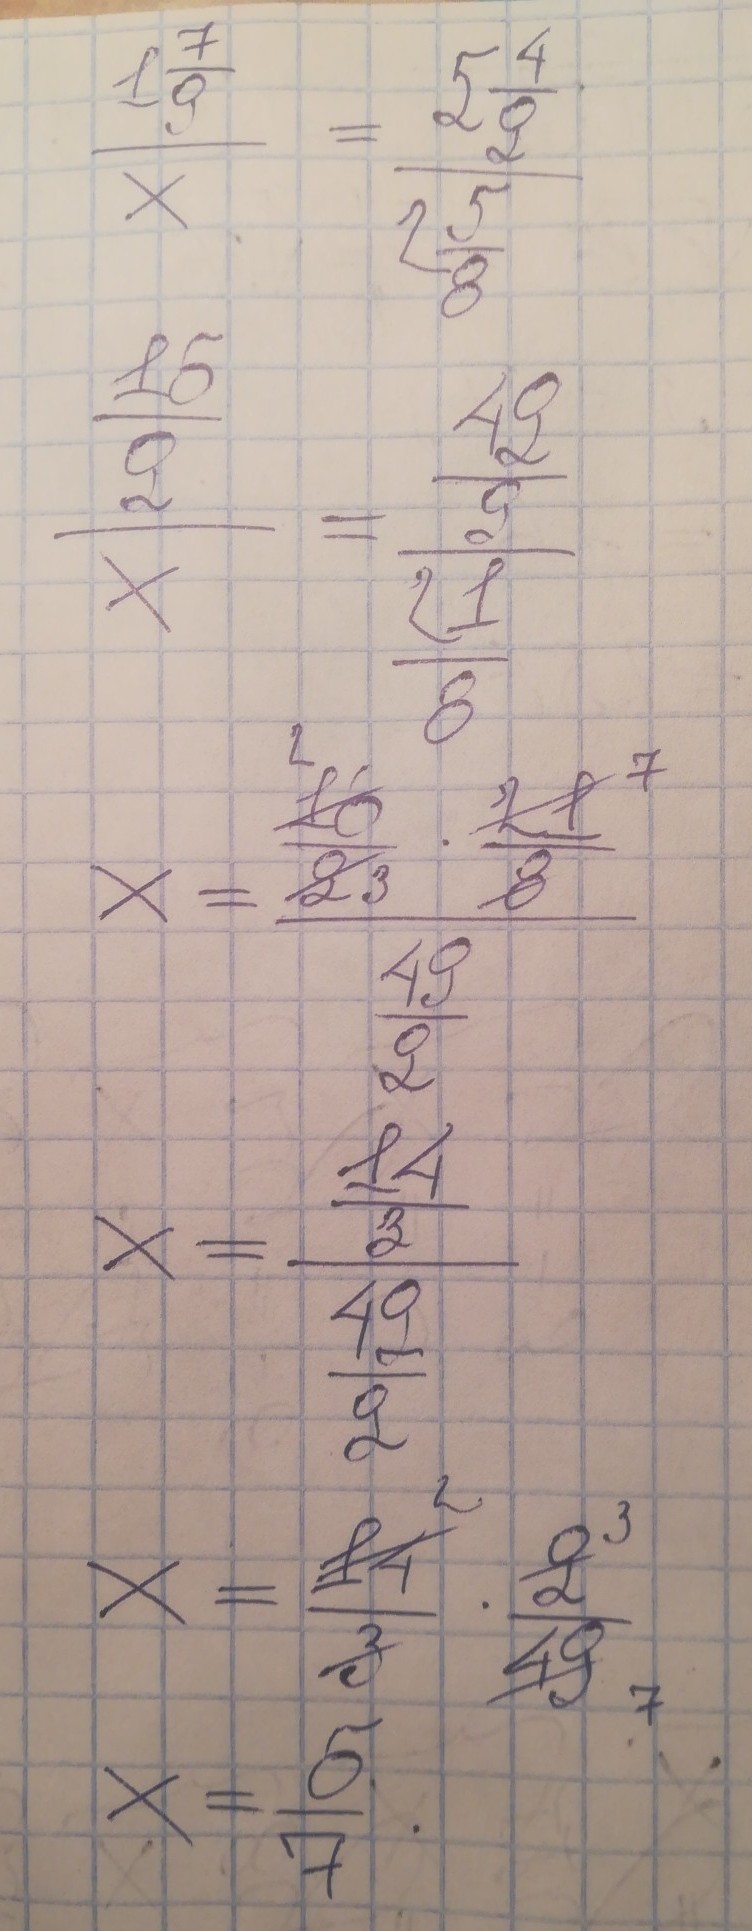 1 7/9 / x = 5 4/9 / 2 5/8
16/9 / x = 49/9 / 21/8
x = 16/9 · 21/8 / 49/9 2 3 7
x = 14/3 / 49/9
x = 14/3 · 9/49 2 3 7
x = 6/7 .